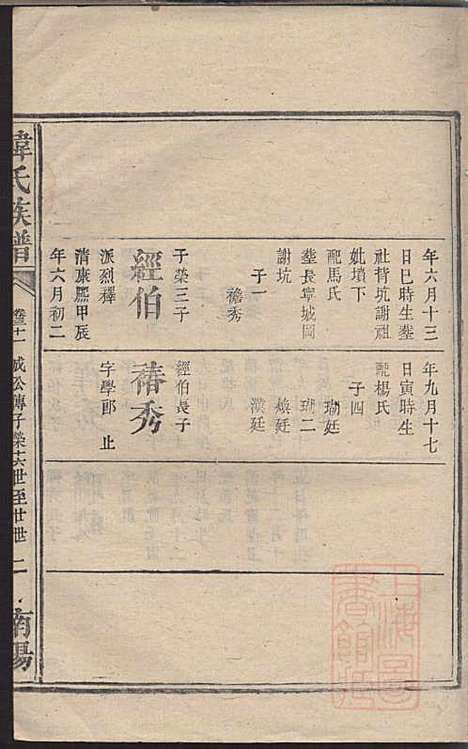 年六月十三
日巳時生塟
社背坑謝祖
妣墳下
配馬氏
塟長寧城岡
謝坑
子一
檐秀
經伯
子榮三子
派烈釋
清康熙甲辰
年六月初二
年九月十七
日寅時生
配楊氏
子四
瑚廷
瑚二
煥廷
漢廷
椿秀
經伯長子
字學郎 止
韓氏族譜
卷十一 成公傳子榮共世至廿世 二
南陽